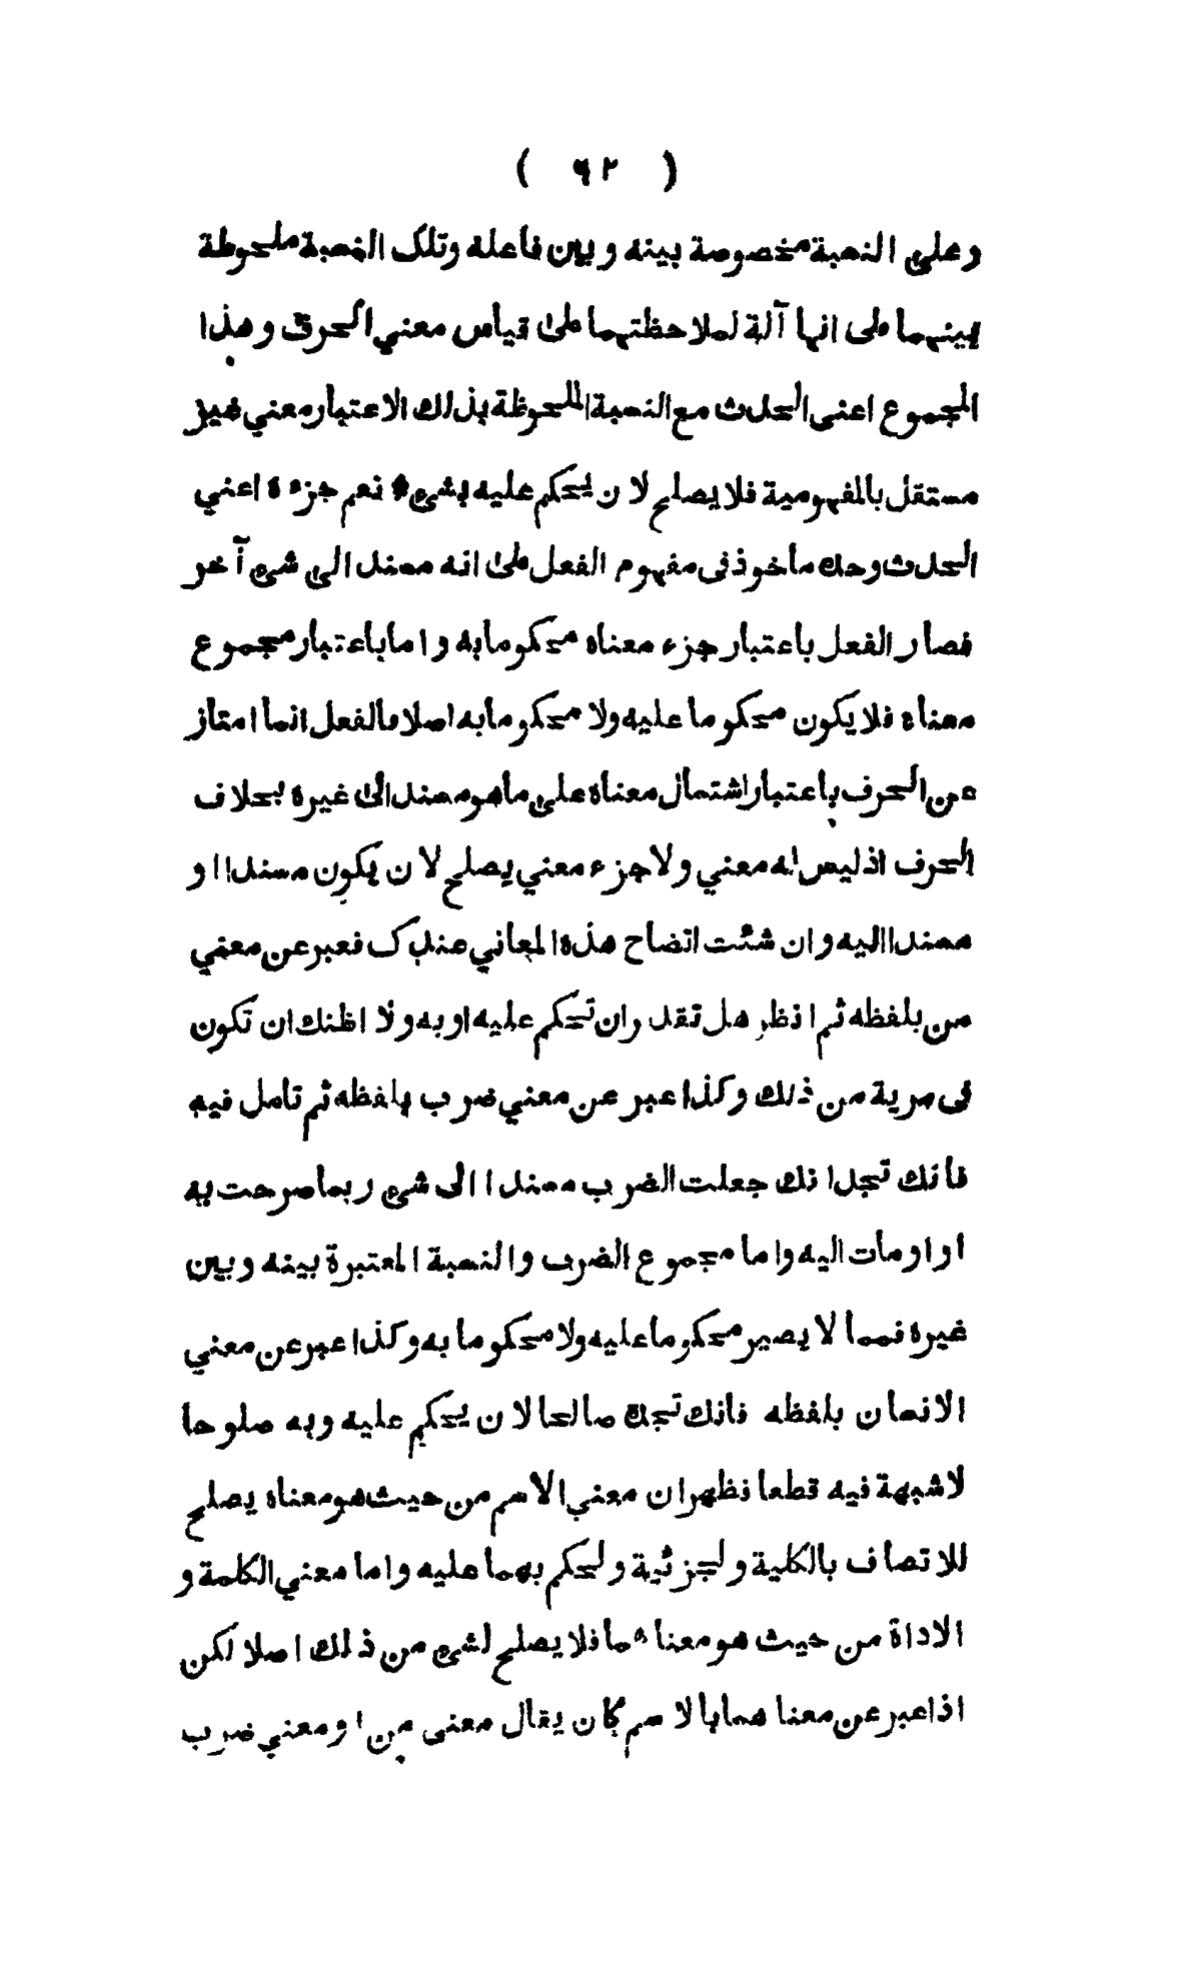 ( ٩٢ )
وعلى النسبة مخصوصة بينه وبين فاعله وتلك النسبة ملحوظة
بينهما على انها آلة لملاحظتهما على قياس معني الحرف وهذا
المجموع اعنى الحدث مع النسبة الملحوظة بذلك الاعتبار معني غير
مستقل بالمفهومية فلا يصلح لان يحكم عليه بشيء نعم جزءه اعني
الحدث وحده مأخوذ فى مفهوم الفعل على انه مسند الى شيء آخر
فصار الفعل باعتبار جزء معناه محكوما به واما باعتبار مجموع
معناه فلا يكون محكوما عليه ولا محكوما به اصلا فالفعل انما امتاز
عن الحرف باعتبار اشتمال معناه على ما هو مسند الى غيره بخلاف
الحرف اذ ليس له معني ولا جزء معني يصلح لان يكون مسندا او
مسندا اليه وان شئت اتضاح هذه المعاني عندك فعبر عن معني
من بلفظه ثم انظر هل تقدر ان تحكم عليه او به ولا اظنك ان تكون
فى مرية من ذلك وكذا عبر عن معني ضرب بلفظه ثم تامل فيه
فانك تجد انك جعلت الضرب مسندا الى شيء ربما صرحت به
او اومأت اليه واما مجموع الضرب والنسبة المعتبرة بينه وبين
غيره فمما لا يصير محكوما عليه ولا محكوما به وكذا عبر عن معني
الانسان بلفظه فانك تجده صالحا لان يحكم عليه وبه صلوحا
لا شبهة فيه قطعا فظهر ان معني الاسم من حيث هو معناه يصلح
للاتصاف بالكلية ولجزئية ولحكم بهما عليه واما معني الكلمة و
الاداة من حيث هو معناهما فلا يصلح لشيء من ذلك اصلا لكن
اذا عبر عن معنا هما بالاسم كان يقال معنى من او معني ضرب